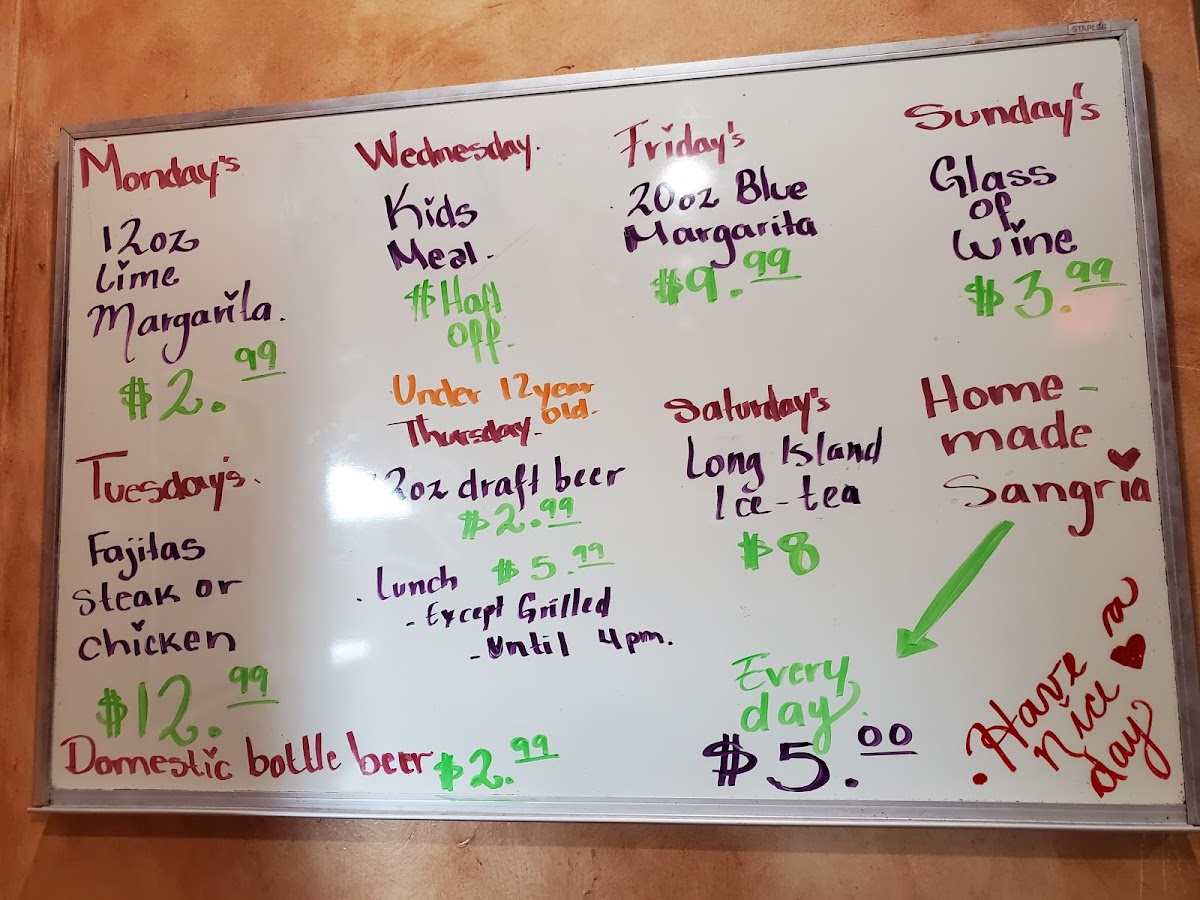 STAPLES
Monday's
12oz
Lime
Margarita.
$2.99
Tuesday's.
Fajitas
Steak or
chicken
$12.99
Domestic bottle beer $2.99
Wednesday.
Kids
Meal.
$Haft
Off.
Under 12 year
old.
Thursday.
12oz draft beer
$2.99
. Lunch $5.99
- Except Grilled
- Until 4 pm.
Friday's
20oz Blue
Margarita
$9.99
Saturday's
Long Island
Ice-tea
$8
Sunday's
Glass
of
Wine
$3.99
Home-
made
Sangria
Every
day.
$5.00
. Have a
nice
day